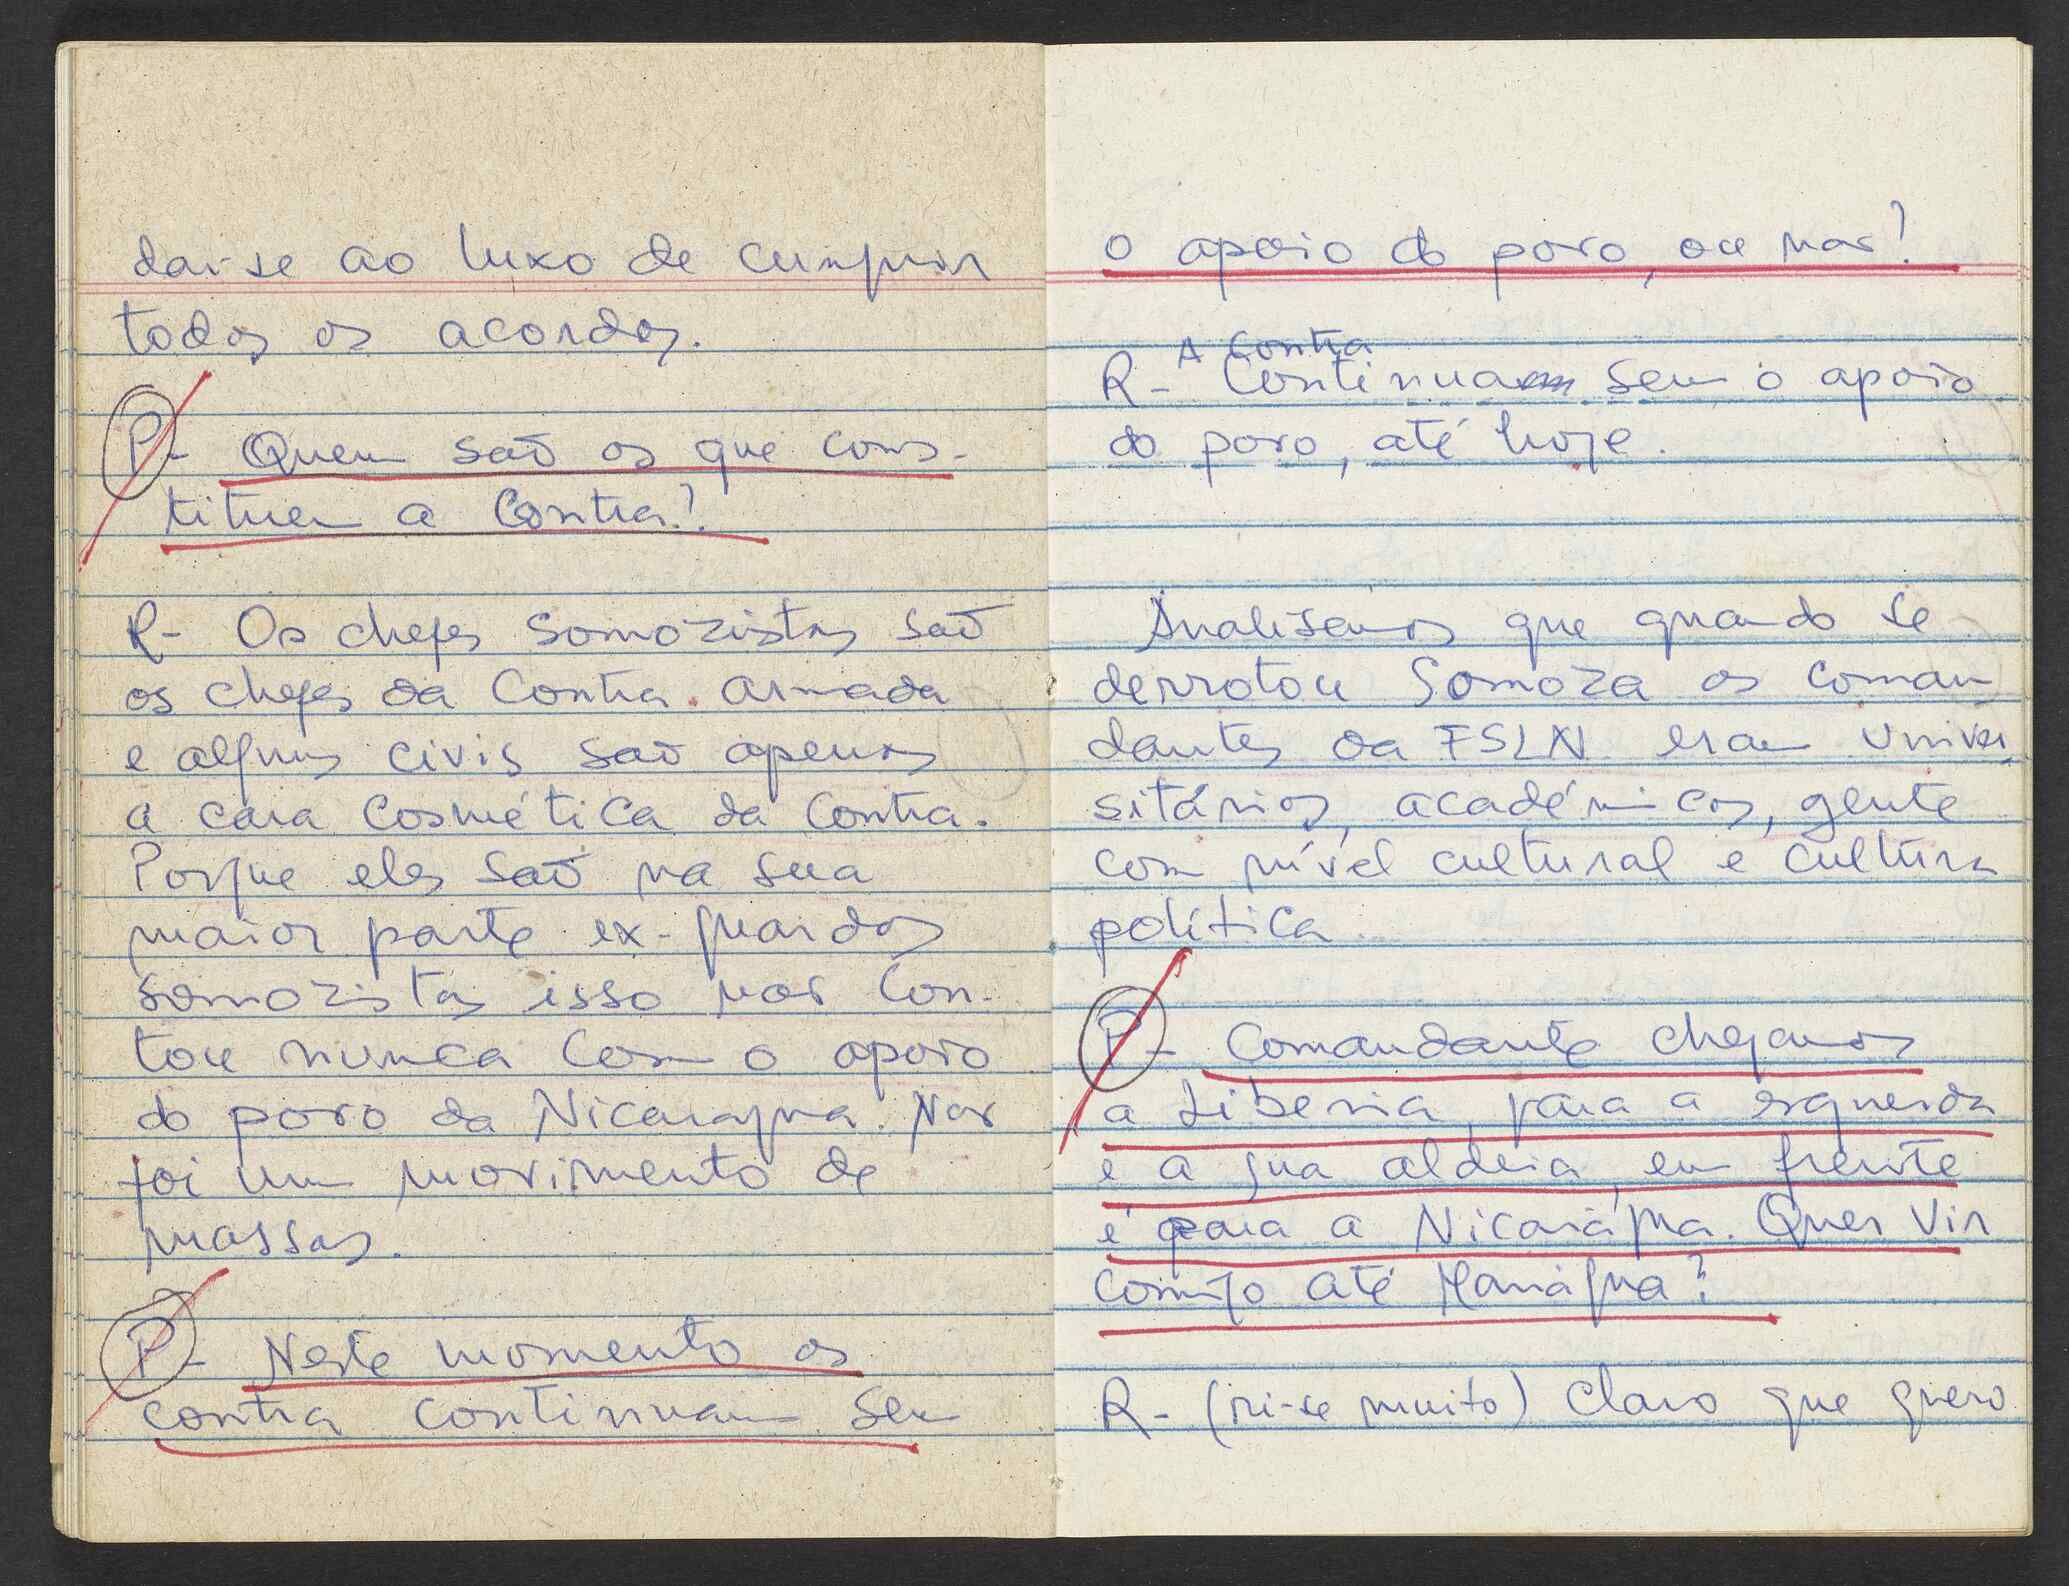 dar-se ao luxo de cumprir
todos os acordos.
P- Quem são os que cons-
tituem a Contra?
R- Os chefes somozistas são
os chefes da Contra armada
e alguns civis são apenas
a cara cosmética da Contra.
Porque eles são na sua
maior parte ex-guardas
somozistas isso não con-
tou nunca com o apoio
do povo da Nicaragua. Não
foi um movimento de
massas.
P- Neste momento os
contra continuam sem
o apoio do povo, ou não?
A Contra
R- Continua sem o apoio
do povo, até hoje.
Analisemos que quando se
derrotou Somoza os coman
dantes da FSLN eram univer
sitários, académicos, gente
com nível cultural e cultura
política
P- Comandante chegamos
a Liberia, para a esquerda
é a sua aldeia, em frente
é para a Nicarágua. Quer vir
comigo até Manágua?
R- (ri-se muito) Claro que quero